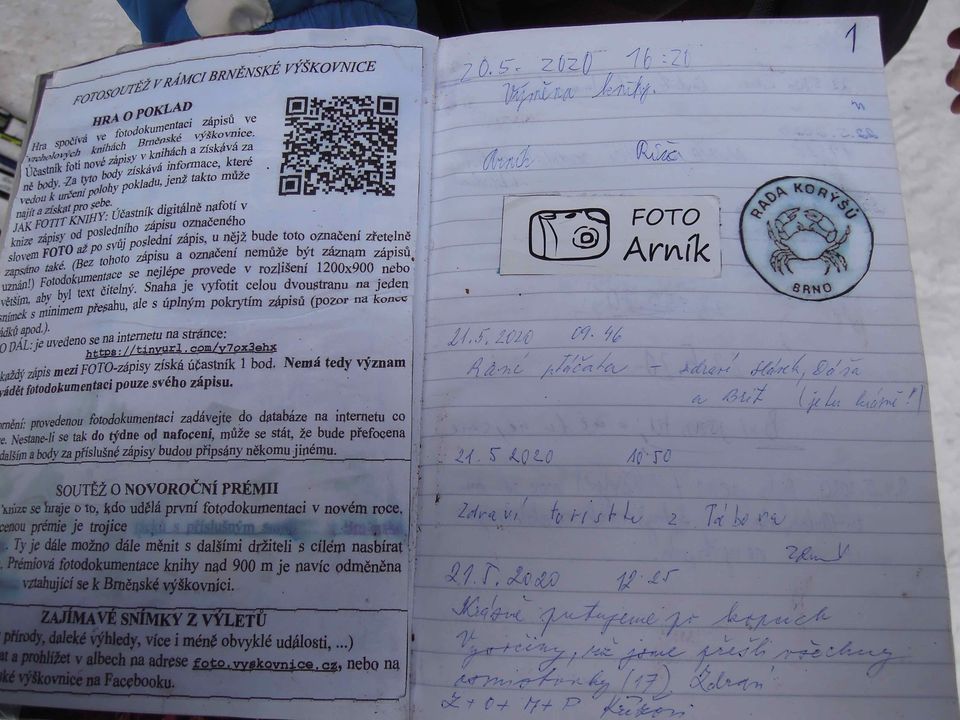 FOTOSOUTĚŽ V RÁMCI BRNĚNSKÉ VÝŠKOVNICE
HRA O POKLAD
Hra spočívá ve fotodokumentaci zápisů ve
vrcholových knihách Brněnské výškovnice.
Účastník fotí nové zápisy v knihách a získává za
ně body. Za tyto body získává informace, které
vedou k určení polohy pokladu, jenž takto může
najít a získat pro sebe.
JAK FOTIT KNIHY: Účastník digitálně nafotí v
knize zápisy od posledního zápisu označeného
slovem FOTO až po svůj poslední zápis, u nějž bude toto označení zřetelně
zapsáno také. (Bez tohoto zápisu a označení nemůže být záznam zápisů
uznán!) Fotodokumentace se nejlépe provede v rozlišení 1200x900 nebo
větším, aby byl text čitelný. Snaha je vyfotit celou dvoustranu na jeden
snímek s minimem přesahu, ale s úplným pokrytím zápisů (pozor na konce
řádků apod.).
O DÁL: je uvedeno se na internetu na stránce:
https://tinyurl.com/y7ox3ehx
každý zápis mezi FOTO-zápisy získá účastník 1 bod. Nemá tedy význam
vádět fotodokumentaci pouze svého zápisu.
ornění: provedenou fotodokumentaci zadávejte do databáze na internetu co
e. Nestane-li se tak do týdne od nafocení, může se stát, že bude přefocena
dalším a body za příslušné zápisy budou připsány někomu jinému.
SOUTĚŽ O NOVOROČNÍ PRÉMII
knize se hraje o to, kdo udělá první fotodokumentaci v novém roce.
cenou prémie je trojice
. Ty je dále možno dále měnit s dalšími držiteli s cílem nasbírat
. Prémiová fotodokumentace knihy nad 900 m je navíc odměněna
vztahující se k Brněnské výškovnici.
ZAJÍMAVÉ SNÍMKY Z VÝLETŮ
přírody, daleké výhledy, více i méně obvyklé události, ...)
at a prohlížet v albech na adrese foto.vyskovnice.cz, nebo na
ké výškovnice na Facebooku.
1
20.5. 2020 16:20
Výměna knihy.
Arník
FOTO
Arník
RADA KORÝŠŮ
BRNO
21.5.2020 09.46
Ranní ptáčata – zdraví Dáša
a Bříž (je tu krásně!)
21.5 2020 10:50
Zdraví turisté z Tábora
21.5.2020 12.25
Krásně putujeme po kopcích
Vysočiny, už jsme přešli všechny
(17) Zdraví
Z+O+M+P